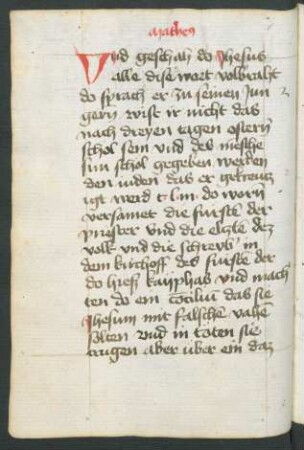 Matheus
Vnd geschah do Jhesus
alle dise wort volbraht
do sprach er zu seinen Jun
gern wist ir nicht das
nach dreyen tagen ostern
schol sein vnd des mesche
sun schol gegeben werden
den iuden das er gekreutz
igt werd do worn
versamet die fursten der
prister vnd die elczte dez
volk vnd die schreyb in
dem kirchoff des fursten der
do hiess kayphas vnd mach
ten do ein concilium das sie
Jhesum mit falsche valle
solten vnd in toten sie
trugen aber uber ein daz